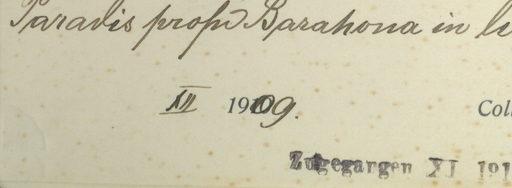 Paradis prope Barahona in
1909.
Col
Zugegangen XI 191